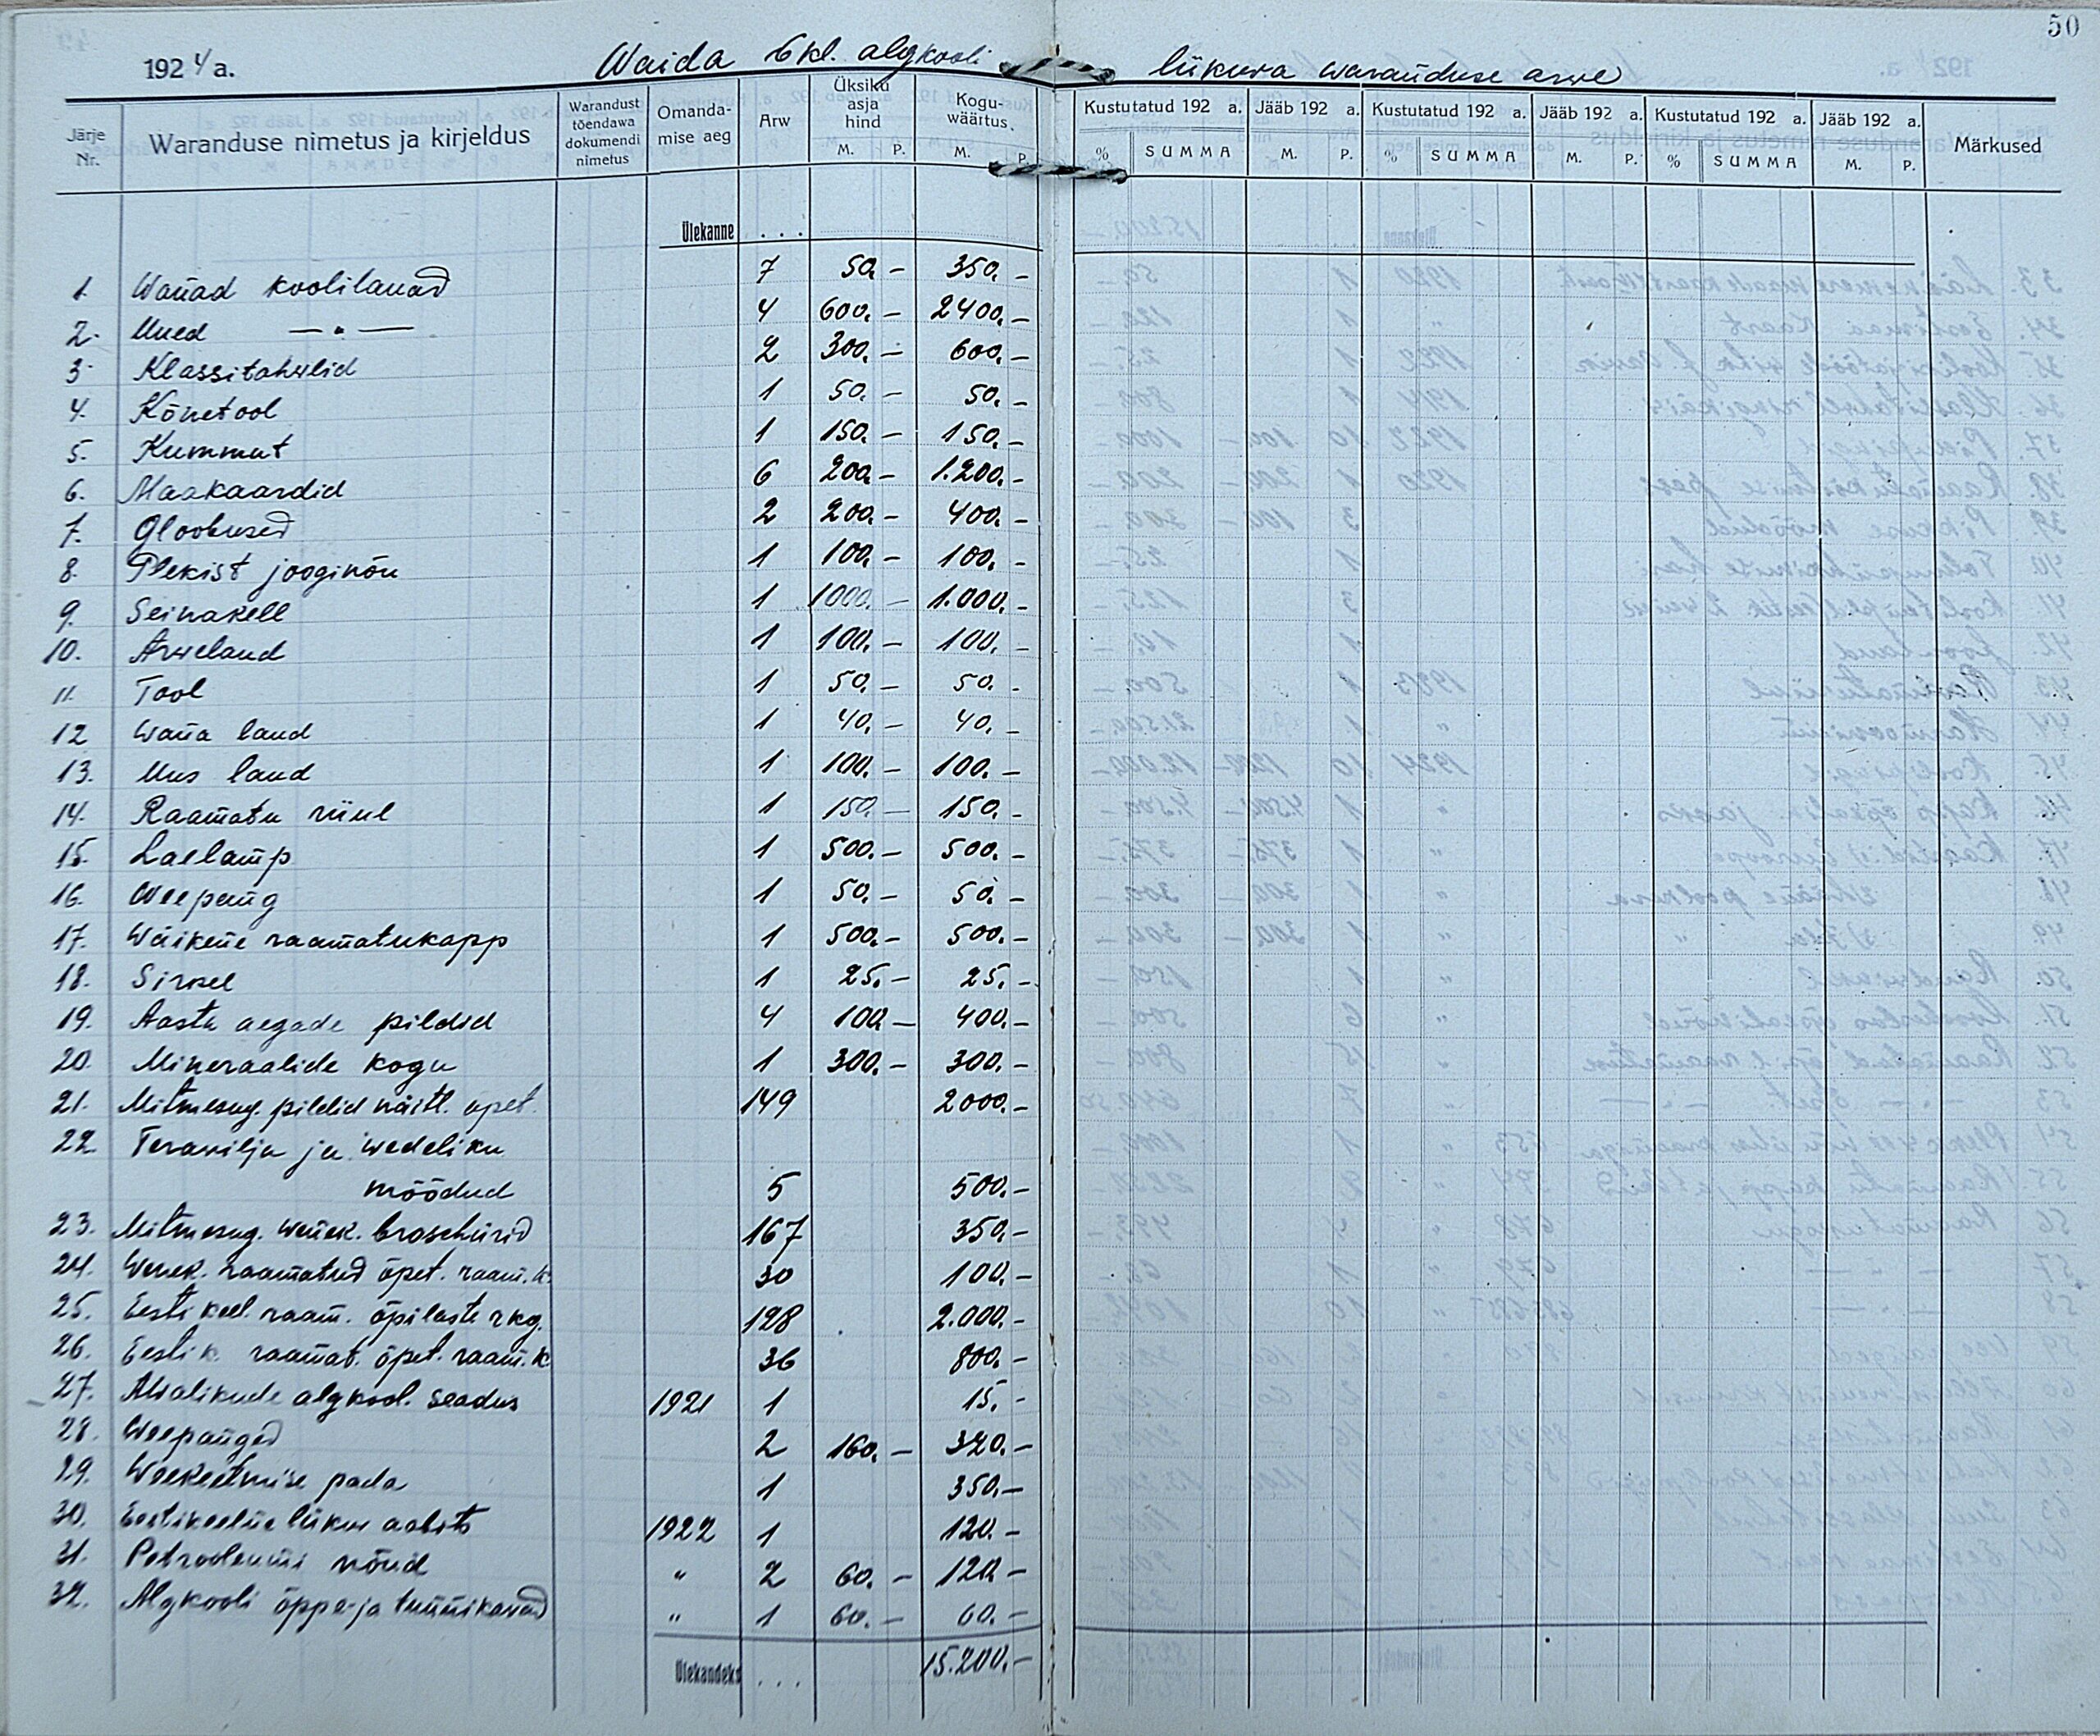 50
1924 a. Waida 6 kl. algkooli liikuva waranduse arve
Järje Nr. Waranduse nimetus ja kirjeldus Warandust tõendawa dokumendi nimetus Omandamise aeg Arw Üksiku asja hind M. P. Koguwäärtus. M. P. Kustutatud 192 a. % SUMMA Jääb 192 a. M. P. Kustutatud 192 a. % SUMMA Jääb 192 a. M. P. Kustutatud 192 a. % SUMMA Jääb 192 a. M. P. Märkused
Ülekanne . . .
1. Wanad koolilauad 7 50.- 350.-
2. Uued —"— 4 600.- 2400.-
3. Klassitahwlid 2 300.- 600.-
4. Kõnetool 1 50.- 50.-
5. Kummut 1 150.- 150.-
6. Maakaardid 6 200.- 1.200.-
7. Gloobused 2 200.- 400.-
8. Plekist jooginõu 1 100.- 100.-
9. Seinakell 1 1000.- 1.000.-
10. Arwelaud 1 100.- 100.-
11. Tool 1 50.- 50.-
12 Wana laud 1 40.- 40.-
13. Uus laud 1 100.- 100.-
14. Raamatu riiul 1 150.- 150.-
15. Laelamp 1 500.- 500.-
16. Weepang 1 50.- 50.-
17. Wäikene raamatukapp 1 500.- 500.-
18. Sirkel 1 25.- 25.-
19. Aasta aegade pildid 4 100.- 400.-
20. Mineraalide kogu 1 300.- 300.-
21. Mitmesug. pildid näitl. õpet. 149 2000.-
22. Terawilja ja wedeliku
mõõdud 5 500.-
23. Mitmesug. wenek. broschürid 167 350.-
24. Wenek. raamatud õpet. raam.k. 30 100.-
25. Eesti keel. raam. õpilaste rkg. 128 2.000.-
26. Eesti k. raamat. õpet. raam.k 36 800.-
27. Awalikude algkool. seadus 1921 1 15.-
28. Weepanged 2 160.- 320.-
29. Weekeetmise pada 1 350.-
30. Eestikeelne liikuv aabits 1922 1 120.-
31. Petrooleumi nõud " 2 60.- 120.-
32. Algkooli õppe- ja tunnikawad " 1 60.- 60.-
Ülekandeks . . . 15.200.-